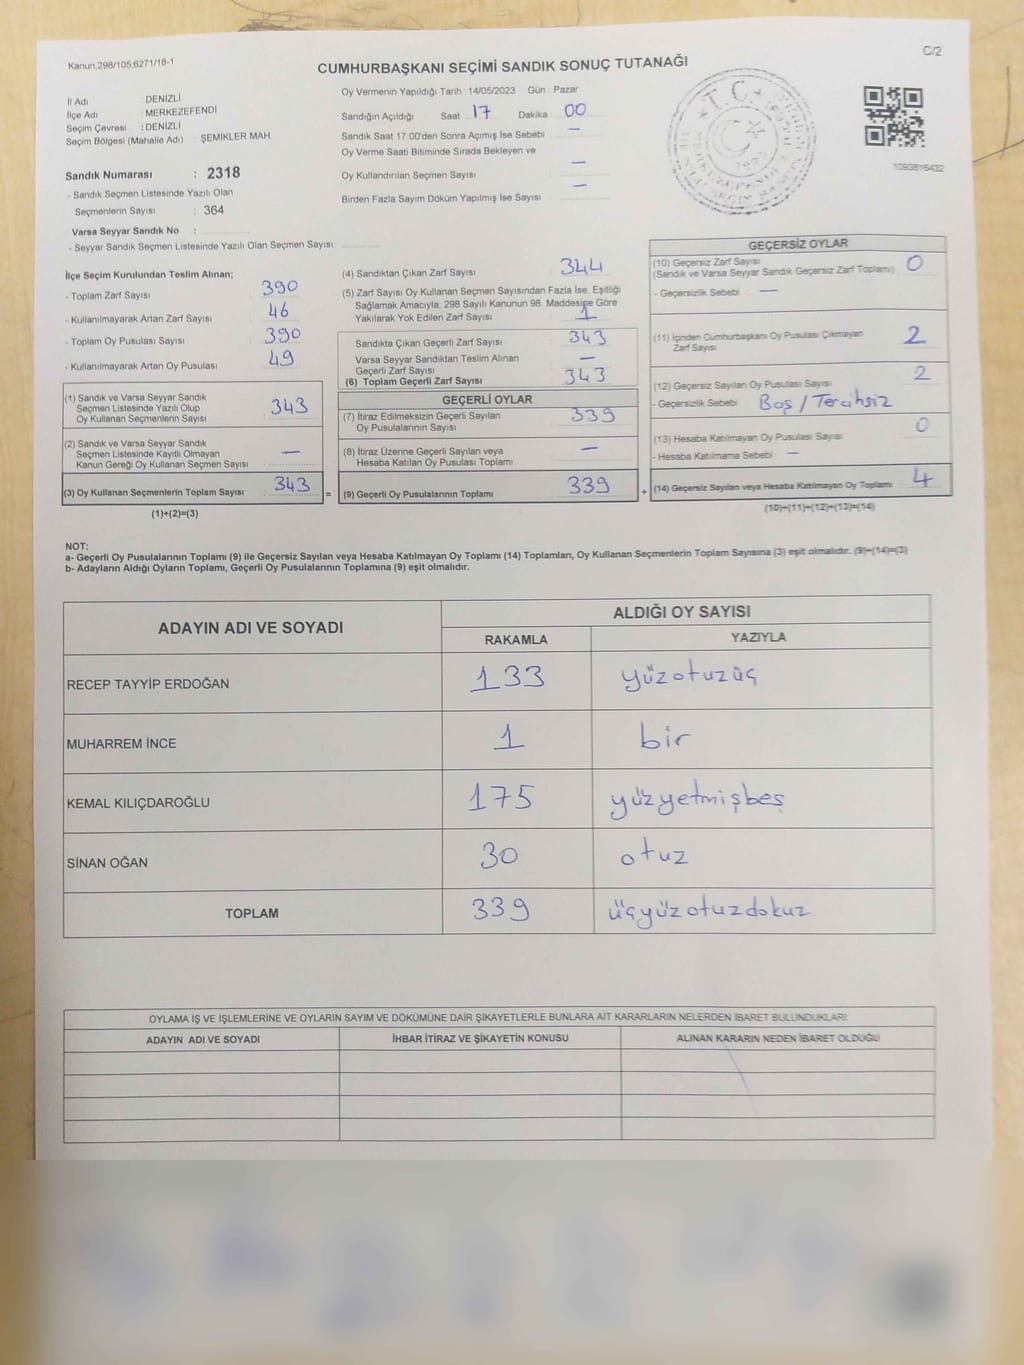 Kanun,298/105,6271/18-1
C/2
CUMHURBAŞKANI SEÇİMİ SANDIK SONUÇ TUTANAĞI
İl Adı : DENİZLİ
İlçe Adı MERKEZEFENDİ
Seçim Çevresi : DENİZLİ
Seçim Bölgesi (Mahalle Adı) ŞEMİKLER MAH
Sandık Numarası : 2318
- Sandık Seçmen Listesinde Yazılı Olan
Seçmenlerin Sayısı : 364
Varsa Seyyar Sandık No :
- Seyyar Sandık Seçmen Listesinde Yazılı Olan Seçmen Sayısı:
Oy Vermenin Yapıldığı Tarih : 14/05/2023 Gün : Pazar
Sandığın Açıldığı Saat 17 Dakika 00
Sandık Saat 17.00'den Sonra Açımış İse Sebebi —
Oy Verme Saati Bitiminde Sırada Bekleyen ve
Oy Kullandırılan Seçmen Sayısı : —
Birden Fazla Sayım Döküm Yapılmış İse Sayısı : —
T.C.
1093815432
İlçe Seçim Kurulundan Teslim Alınan;
- Toplam Zarf Sayısı 390
- Kullanılmayarak Artan Zarf Sayısı : 46
- Toplam Oy Pusulası Sayısı : 390
- Kullanılmayarak Artan Oy Pusulası 49
(1) Sandık ve Varsa Seyyar Sandık
Seçmen Listesinde Yazılı Olup
Oy Kullanan Seçmenlerin Sayısı 343
(2) Sandık ve Varsa Seyyar Sandık
Seçmen Listesinde Kayıtlı Olmayan
Kanun Gereği Oy Kullanan Seçmen Sayısı —
(3) Oy Kullanan Seçmenlerin Toplam Sayısı : 343
(1)+(2)=(3)
(4) Sandıktan Çıkan Zarf Sayısı 344
(5) Zarf Sayısı Oy Kullanan Seçmen Sayısından Fazla İse, Eşitliği
Sağlamak Amacıyla, 298 Sayılı Kanunun 98. Maddesine Göre
Yakılarak Yok Edilen Zarf Sayısı : 1
Sandıkta Çıkan Geçerli Zarf Sayısı : 343
Varsa Seyyar Sandıktan Teslim Alınan
Geçerli Zarf Sayısı —
(6) Toplam Geçerli Zarf Sayısı : 343
GEÇERLİ OYLAR
(7) İtiraz Edilmeksizin Geçerli Sayılan
Oy Pusulalarının Sayısı 339
(8) İtiraz Üzerine Geçerli Sayılan veya
Hesaba Katılan Oy Pusulası Toplamı —
= (9) Geçerli Oy Pusulalarının Toplamı 339 +
GEÇERSİZ OYLAR
(10) Geçersiz Zarf Sayısı
(Sandık ve Varsa Seyyar Sandık Geçersiz Zarf Toplamı) 0
- Geçersizlik Sebebi : —
(11) İçinden Cumhurbaşkanı Oy Pusulası Çıkmayan
Zarf Sayısı 2
(12) Geçersiz Sayılan Oy Pusulası Sayısı 2
- Geçersizlik Sebebi Boş / Tercihsiz
(13) Hesaba Katılmayan Oy Pusula Sayısı 0
- Hesaba Katılmama Sebebi : —
(14) Geçersiz Sayılan veya Hesaba Katılmayan Oy Toplamı 4
(10)+(11)+(12)+(13)=(14)
NOT:
a- Geçerli Oy Pusulalarının Toplamı (9) ile Geçersiz Sayılan veya Hesaba Katılmayan Oy Toplamı (14) Toplamları, Oy Kullanan Seçmenlerin Toplam Sayısına (3) eşit olmalıdır. (9)+(14)=(3)
b- Adayların Aldığı Oyların Toplamı, Geçerli Oy Pusulalarının Toplamına (9) eşit olmalıdır.
ADAYIN ADI VE SOYADI
ALDIĞI OY SAYISI
RAKAMLA YAZIYLA
RECEP TAYYİP ERDOĞAN 133 yüzotuzüç
MUHARREM İNCE 1 bir
KEMAL KILIÇDAROĞLU 175 yüzyetmişbeş
SİNAN OĞAN 30 otuz
TOPLAM 339 üçyüzotuzdokuz
OYLAMA İŞ VE İŞLEMLERİNE VE OYLARIN SAYIM VE DÖKÜMÜNE DAİR ŞİKAYETLERLE BUNLARA AİT KARARLARIN NELERDEN İBARET BULUNDUKLARI
ADAYIN ADI VE SOYADI İHBAR İTİRAZ VE ŞİKAYETİN KONUSU ALINAN KARARIN NEDEN İBARET OLDUĞU